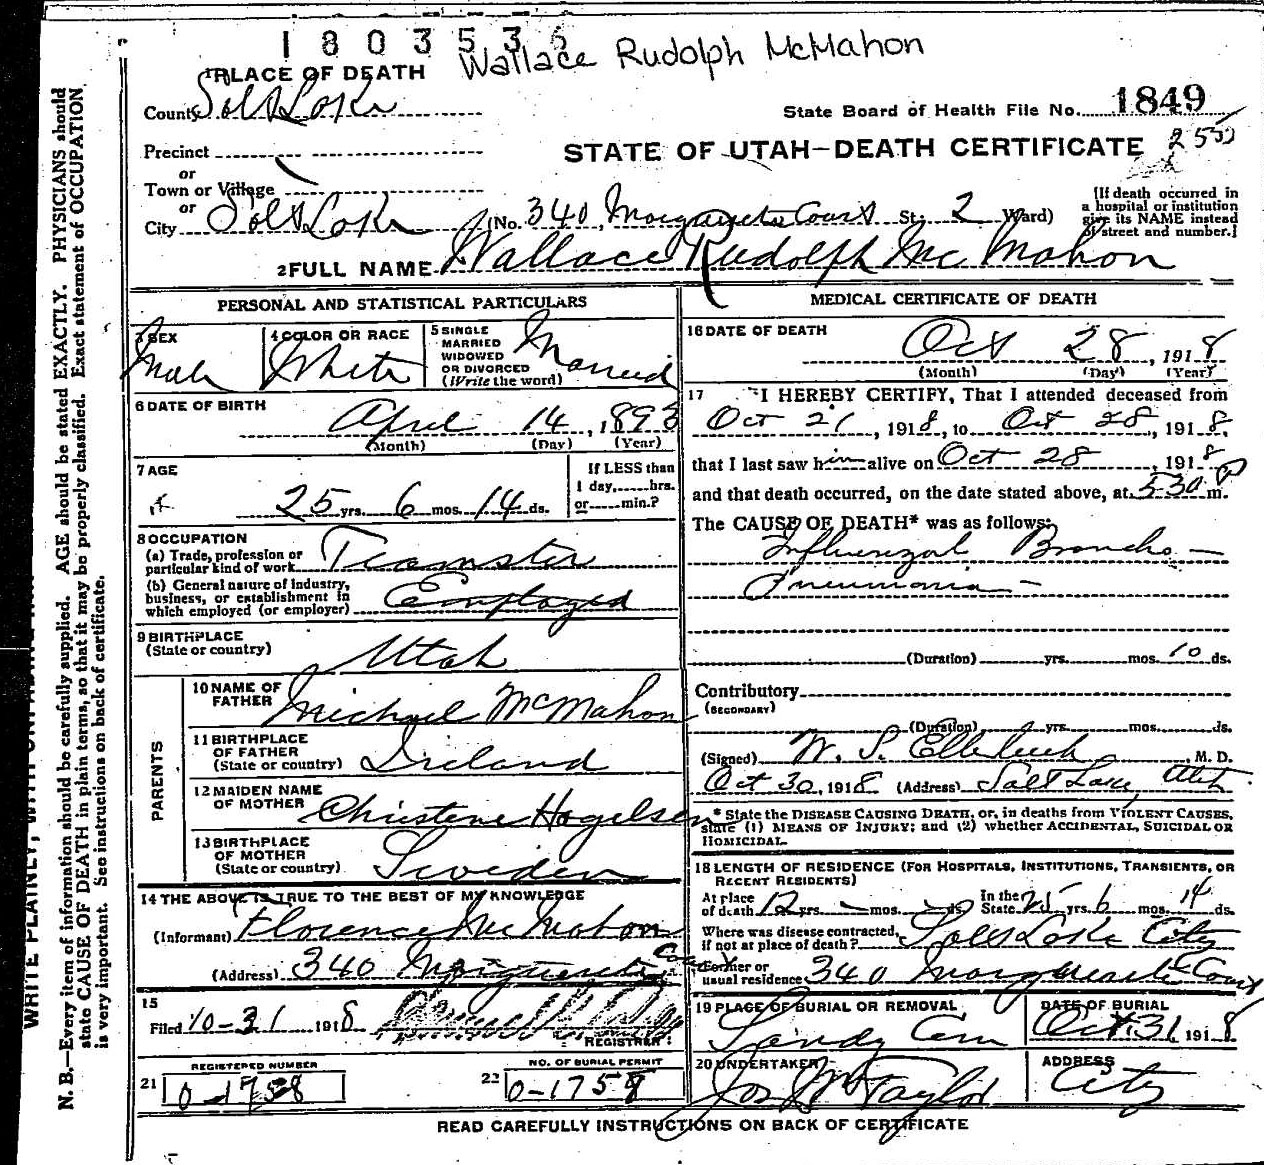 1803535
Wallace Rudolph McMahon
1 PLACE OF DEATH
County Salt Lake
State Board of Health File No. 1849
Precinct
STATE OF UTAH—DEATH CERTIFICATE
or
Town or Village
or
City Salt Lake (No. 340, Marguerite Court St; 2 Ward)
[If death occurred in
a hospital or institution
give its NAME instead
of street and number.]
2 FULL NAME Wallace Rudolph McMahon
PERSONAL AND STATISTICAL PARTICULARS
3 SEX
Male
4 COLOR OR RACE
White
5 SINGLE
MARRIED
WIDOWED
OR DIVORCED
(Write the word)
Married
6 DATE OF BIRTH
April 14, 1893
(Month) (Day) (Year)
7 AGE
25 yrs. 6 mos. 14 ds.
If LESS than
1 day, hrs.
or min.?
8 OCCUPATION
(a) Trade, profession or
particular kind of work Teamster
(b) General nature of industry,
business, or establishment in
which employed (or employer) Employed
9 BIRTHPLACE
(State or country) Utah
PARENTS
10 NAME OF
FATHER Michael McMahon
11 BIRTHPLACE
OF FATHER
(State or country) Ireland
12 MAIDEN NAME
OF MOTHER Christene Hogelsen
13 BIRTHPLACE
OF MOTHER
(State or country) Sweden
14 THE ABOVE IS TRUE TO THE BEST OF MY KNOWLEDGE
(Informant) Florence McMahon
(Address) 340 Marguerite Court
15
Filed 10-31 1918
REGISTRAR
REGISTERED NUMBER
21 0-1758
NO. OF BURIAL PERMIT
22 0-1758
MEDICAL CERTIFICATE OF DEATH
16 DATE OF DEATH
Oct 28, 1918
(Month) (Day) (Year)
17 I HEREBY CERTIFY, That I attended deceased from
Oct 21, 1918, to Oct 28, 1918,
that I last saw him alive on Oct 28, 1918
and that death occurred, on the date stated above, at 5:30 P m.
The CAUSE OF DEATH* was as follows:
Influenzal Broncho—
Pneumonia—
(Duration) yrs. mos. 10 ds.
Contributory
(SECONDARY)
(Duration) yrs. mos. ds.
(Signed) W. S. Ellerbeck, M. D.
Oct 30, 1918 (Address) Salt Lake, Utah
* State the DISEASE CAUSING DEATH, or, in deaths from VIOLENT CAUSES,
state (1) MEANS OF INJURY; and (2) whether ACCIDENTAL, SUICIDAL OR
HOMICIDAL.
18 LENGTH OF RESIDENCE (FOR HOSPITALS, INSTITUTIONS, TRANSIENTS, OR
RECENT RESIDENTS)
At place
of death 12 yrs. – mos. – ds.
In the
State 25 yrs. 6 mos. 14 ds.
Where was disease contracted,
if not at place of death? Salt Lake City
Former or
usual residence 340 Marguerite Court
19 PLACE OF BURIAL OR REMOVAL
Sandy Cem
DATE OF BURIAL
Oct. 31, 1918
20 UNDERTAKER
Jos Wm Taylor
ADDRESS
City
READ CAREFULLY INSTRUCTIONS ON BACK OF CERTIFICATE
N. B.—Every item of information should be carefully supplied. AGE should be stated EXACTLY. PHYSICIANS should
state CAUSE OF DEATH in plain terms, so that it may be properly classified. Exact statement of OCCUPATION
is very important. See instructions on back of certificate.